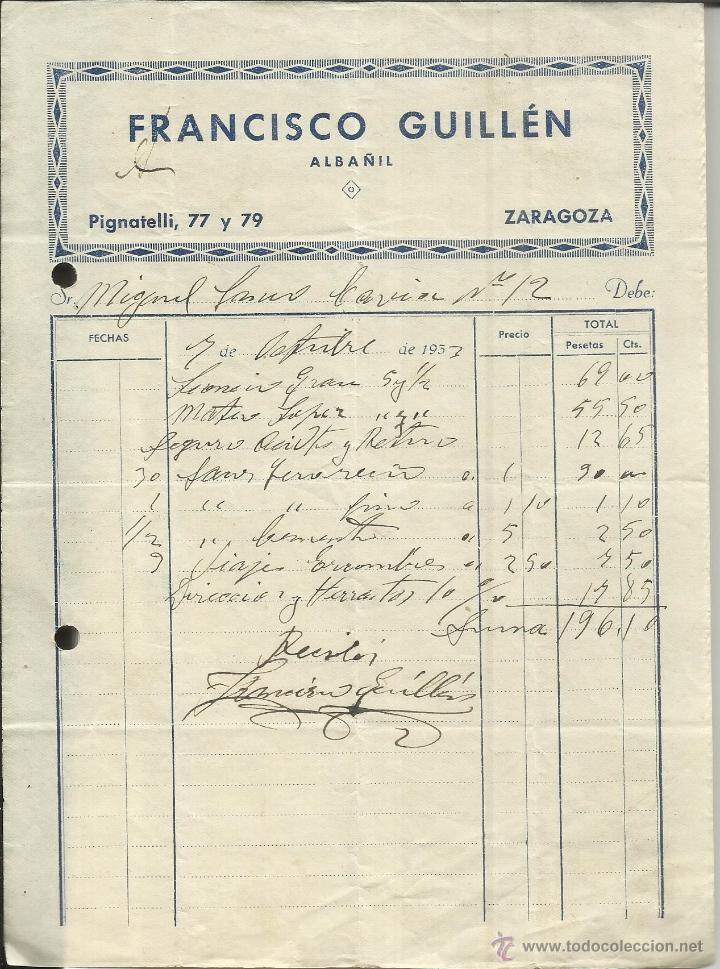 FRANCISCO GUILLÉN
ALBAÑIL
Pignatelli, 77 y 79 ZARAGOZA
Sr. Miguel Nº 12 Debe:
FECHAS Precio TOTAL
Pesetas Cts.
7 de Octubre de 1953
Grau 5 y 1/2 69 00
Mateo Lopez " " " 55 50
Seguro y Retiro 12 65
30 Sacos a 1 30 00
1 " " fino a 1 10 1 10
1/2 " Cemento a 5 2 50
3 Viajes Escombros a 2 50 7 50
Direccion y 10 %o 17 85
Suma 196,10
Recibí
Francisco Guillén
www.todocoleccion.net